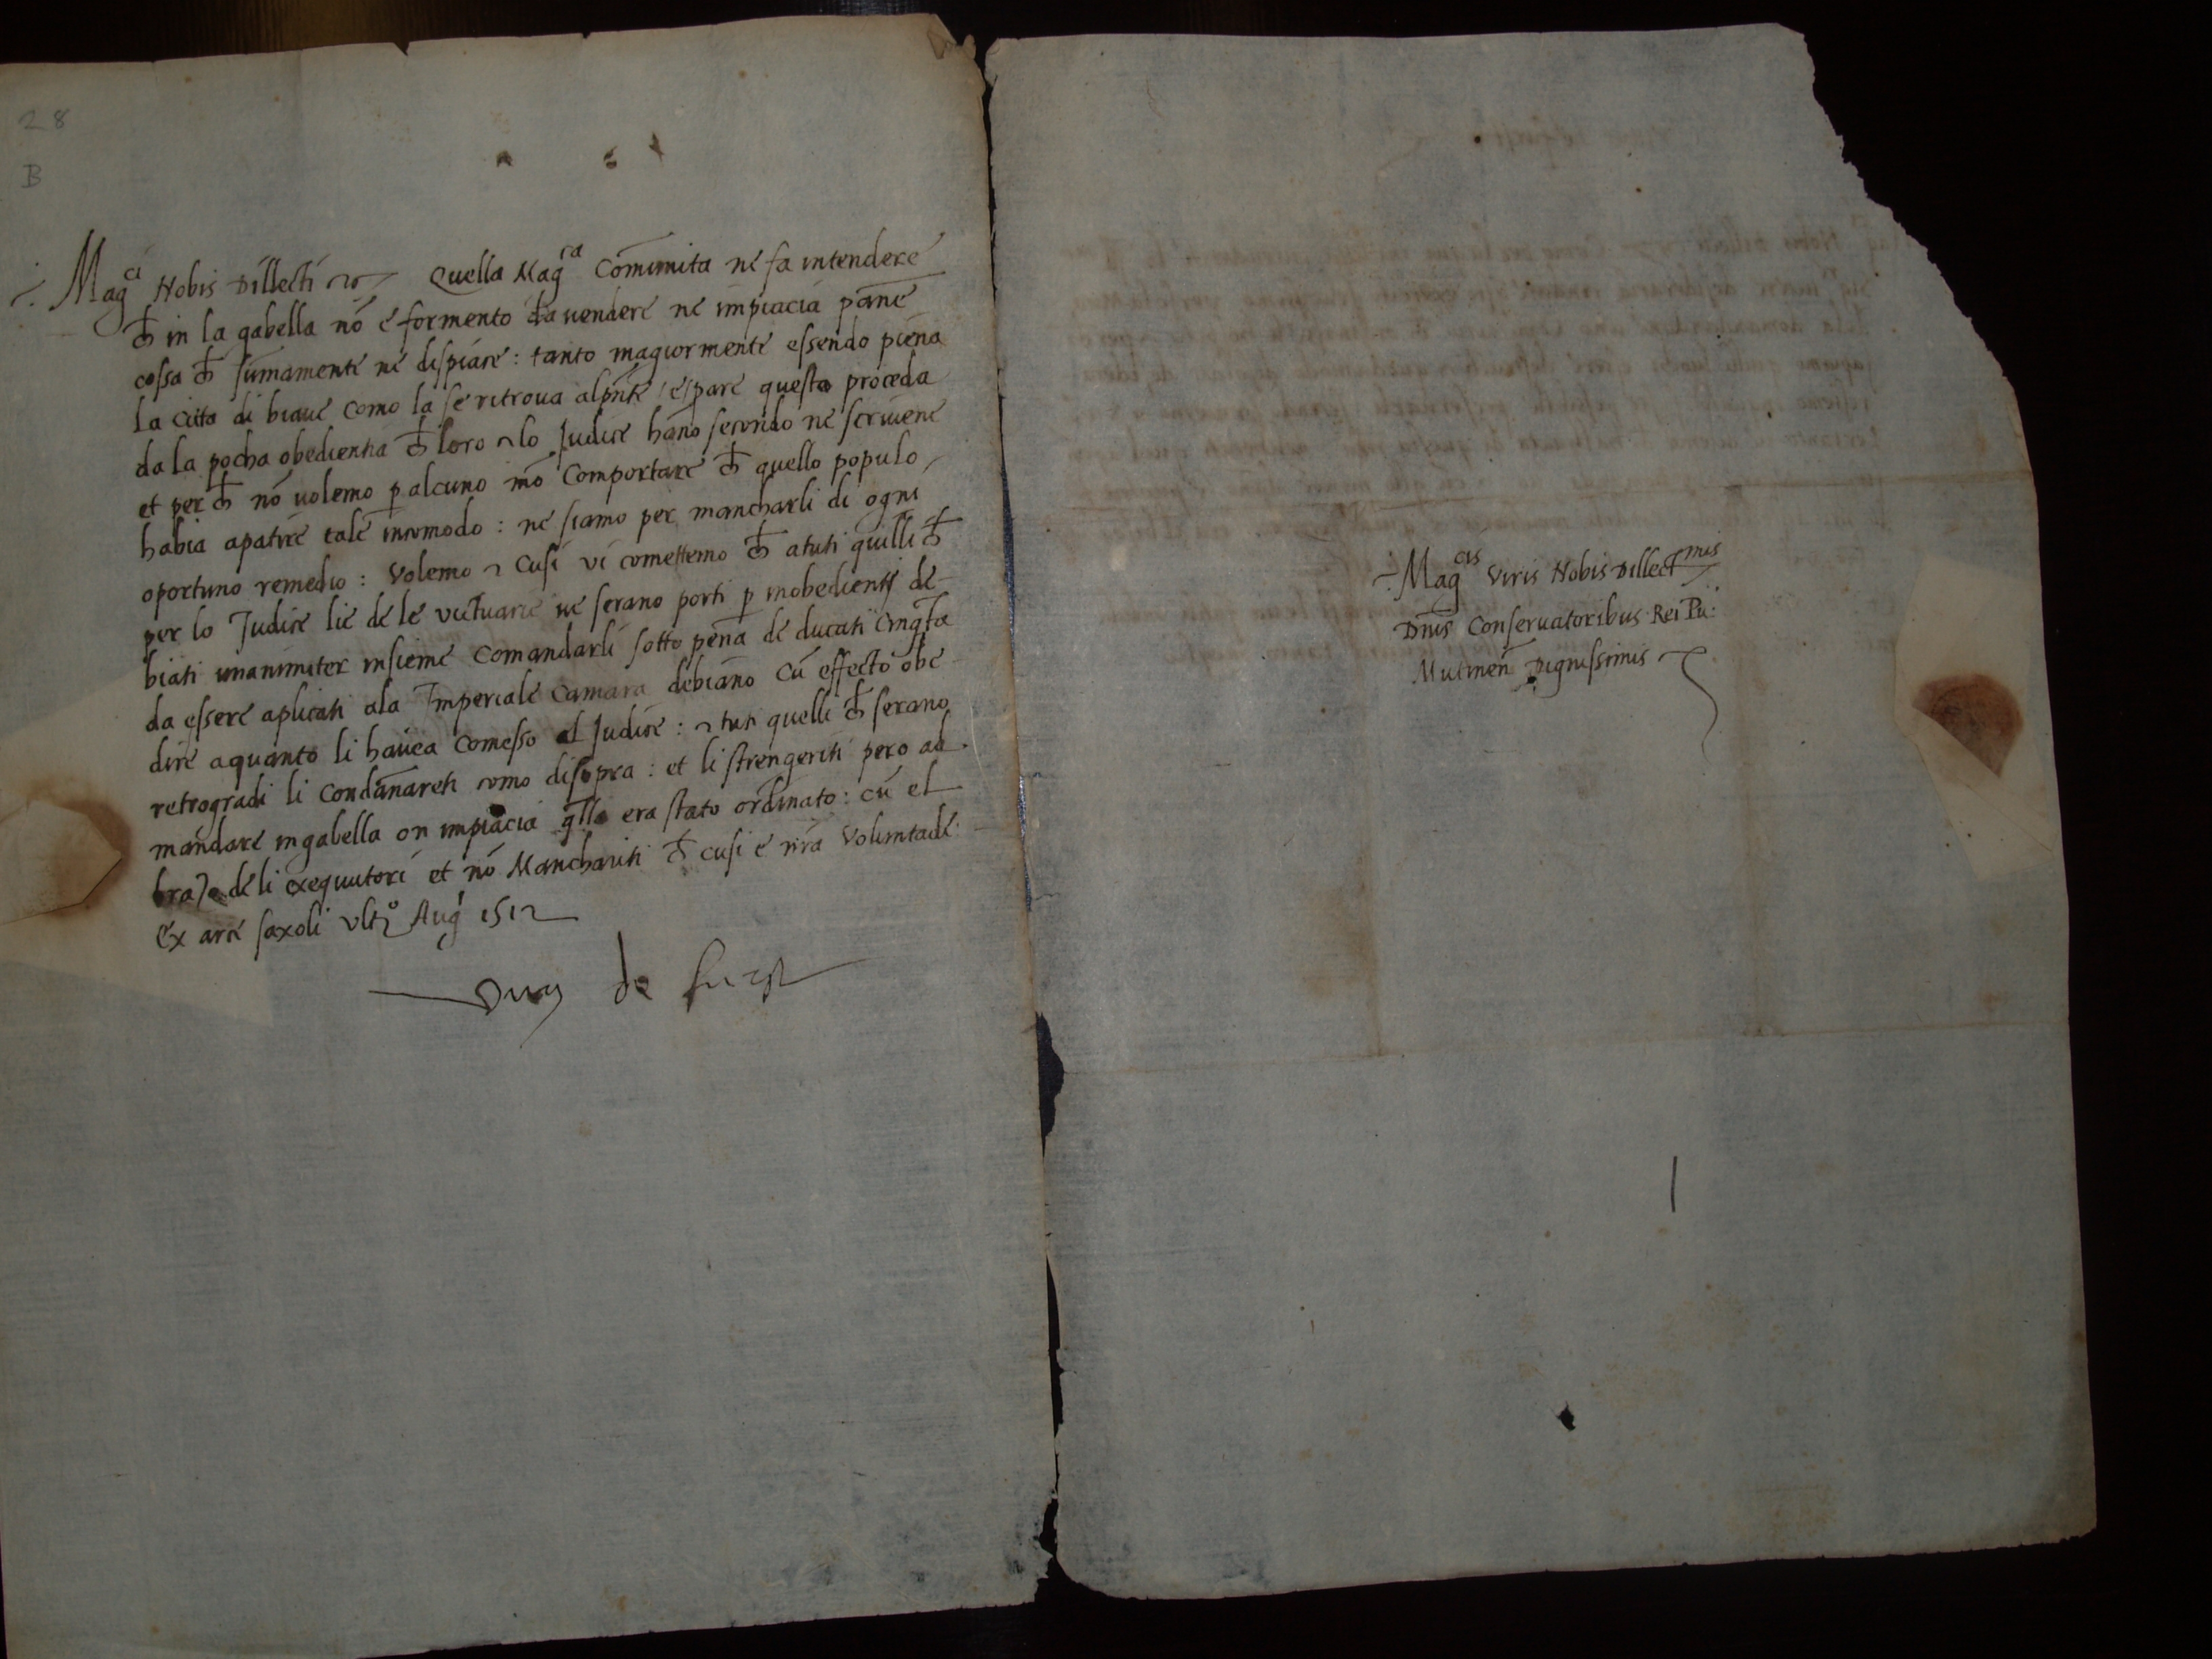 28
B
Mag^ci Nobis Dillecti &c Quella Mag^ca Comunita ne fa intendere
ch in la gabella nō e formento da vendere ne impiacia pane
cossa ch sūmamente ne dispiace: tanto magiormente essendo piena
la citta di biave como la se ritrova alpn̄te / e pare questo proceda
da la pocha obedientia ch loro & lo Judice hano secondo ne scrivene
et per ch nō volemo p alcuno mō comportare ch quello populo
habia apatire tale incomodo: ne siamo per mancharli di ogni
oportuno remedio: Volemo & cusi vi comettemo ch a tuti quilli ch
per lo Judice lie de le victuarie ve serano porti p inobedienti de-
biati unanimiter insieme comandarli sotto pena de ducati Cinq̄ta
da essere aplicati ala Imperiale camara debiano cū effecto obe
dire aquanto li havea comesso el Judice: & tuti quelli ch serano
retrogradi li condānareti como disopra: et li strengeriti pero ad
mandare in gabella on impiacia q̄llo era stato ordinato: cū el
brazo de li exequutori et nō Manchariti ch cusi e nr̄a Voluntade:
Ex arce saxoli ult^o Aug^i 1512
Mag^cis Viris Nobis Dillect^mis
Dn̄is Conservatoribus Rei Pu:
Mutinen̄ Dignissimis